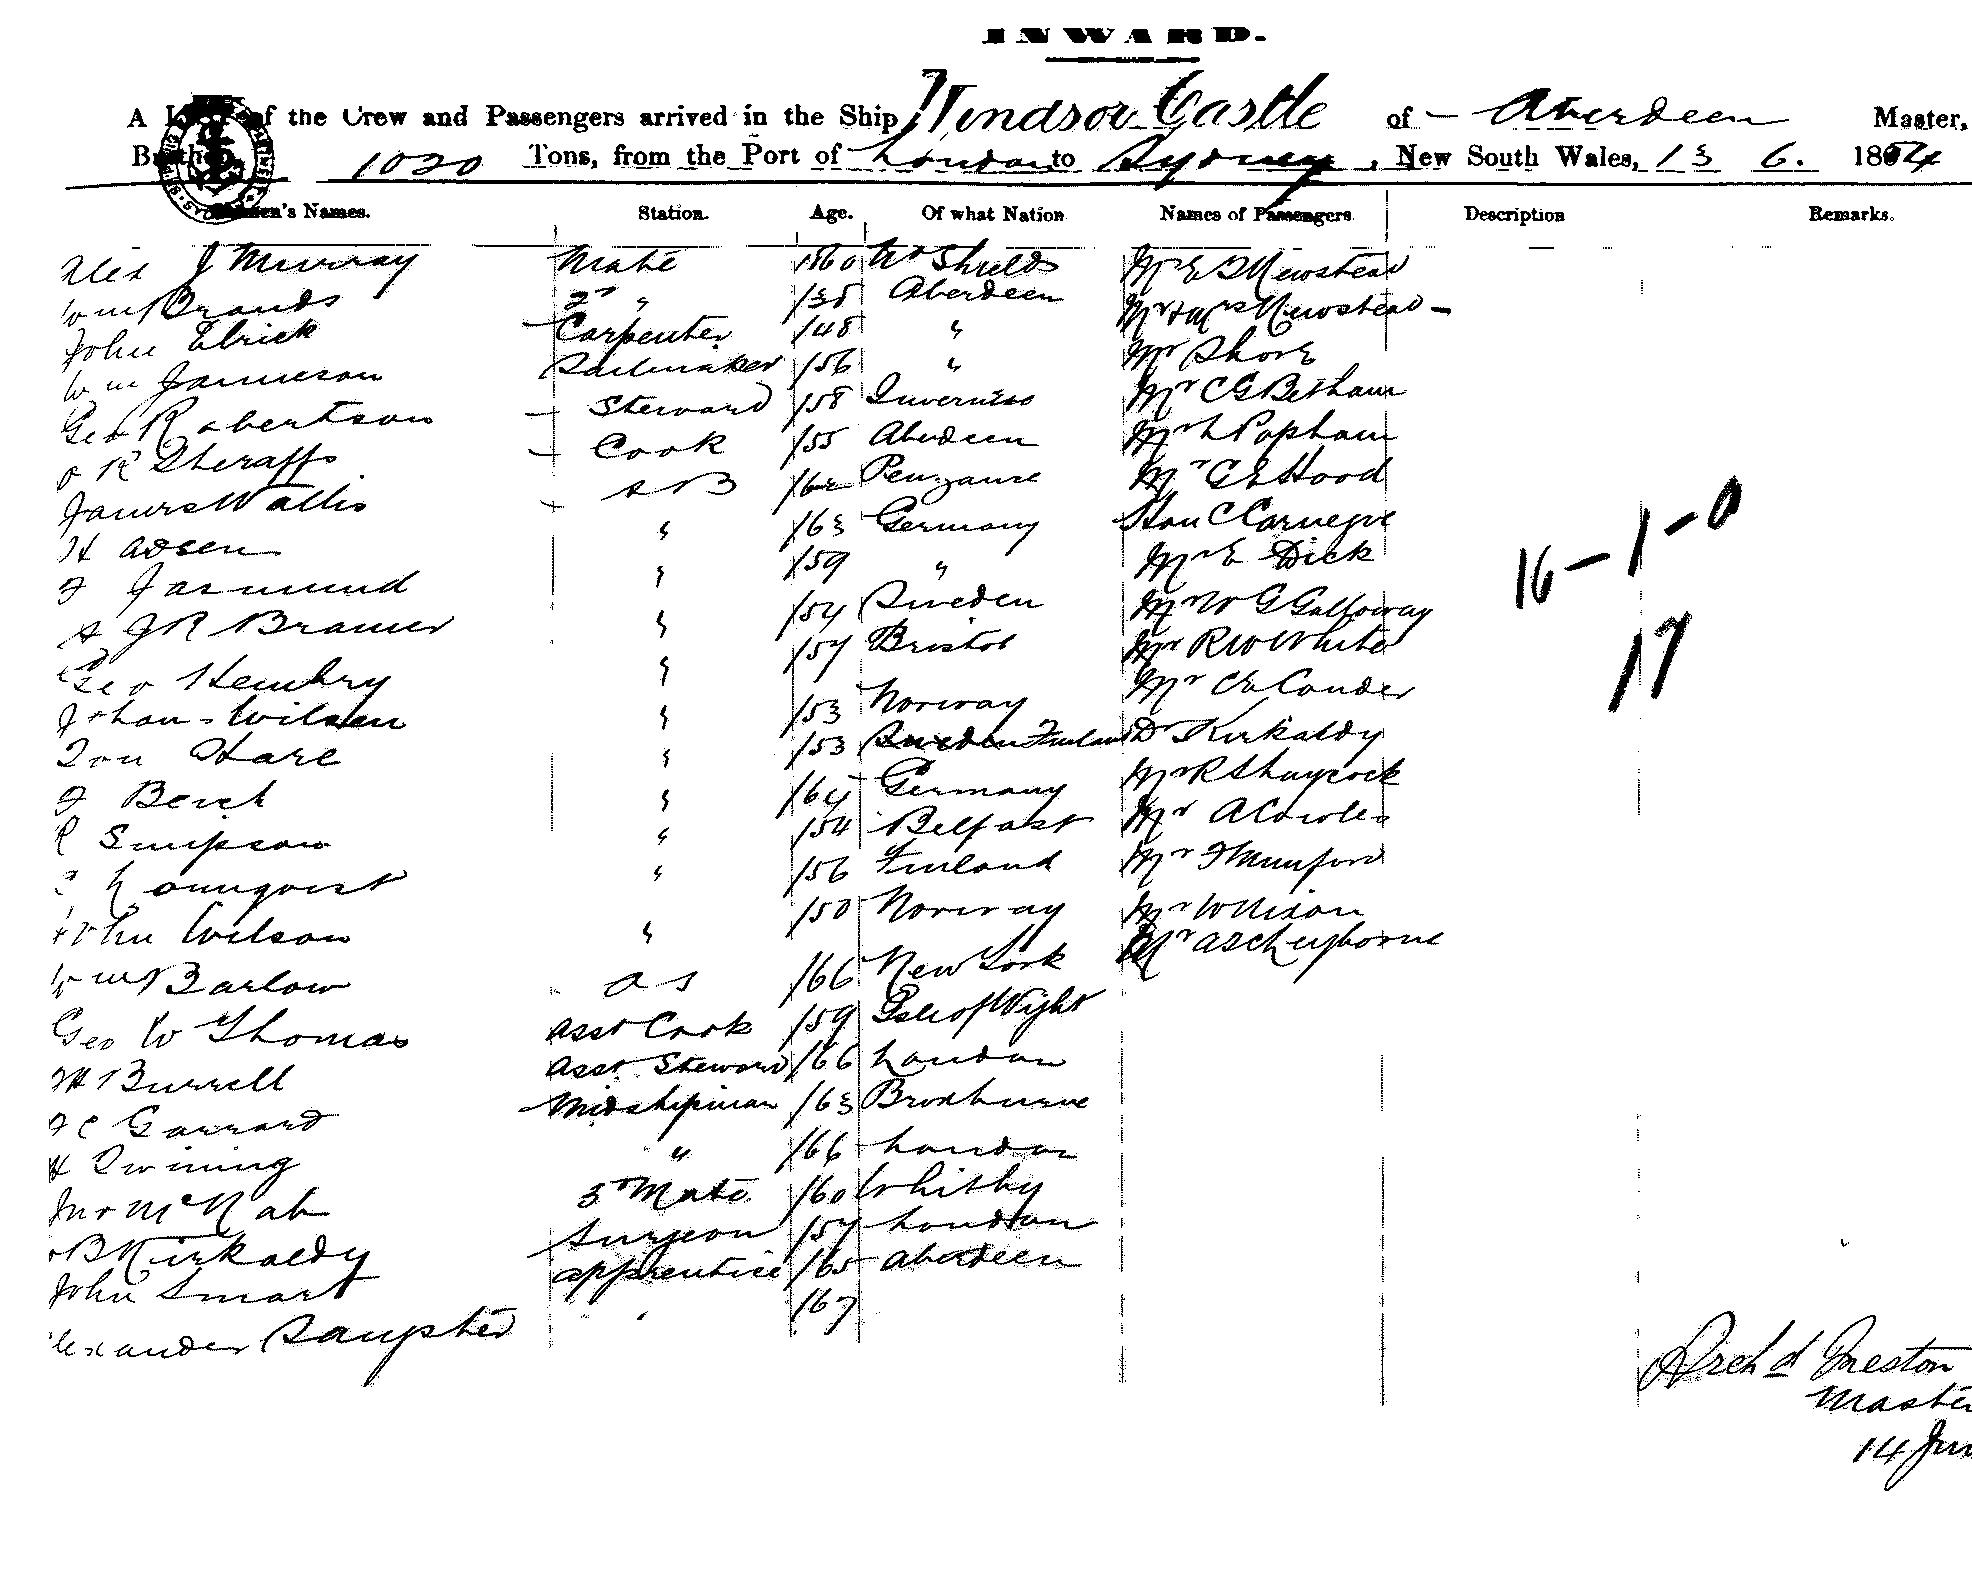 INWARD.
A of the Crew and Passengers arrived in the Ship Windsor Castle of Aberdeen Master,
1020 Tons, from the Port of London to Sydney, New South Wales, 13 6. 1884
Names. Station. Age. Of what Nation Names of Passengers Description Remarks.
Alex J Murray Mate 160 No Shields Mr E S Newstead
Wm Brands 2nd " 135 Aberdeen Mr & Mrs Newstead
John Elrick Carpenter 148 " Mr Shore
Wm Jamieson Sailmaker 156 " Mr C G Betham
Geo Robertson Steward 158 Inverness Mr L Popham
R Sheraffs Cook 155 Aberdeen Mr G E Hood
James Wallis A B Penzance Hon C Carnegie
H Adsen " 163 Germany Mr E Dick
F Jasmund " 159 " Mr W G Galloway
A J R Bramer " 154 Sweden Mr R W White
Geo Hembry " 157 Bristol Mr C E Conder
Johan Wilsen " 153 Norway Dr Kirkaldy
Hare " 153 Finland Mr R S
F " 164 Germany Mr A Cowles
R Simpson " 154 Belfast Mr F Mumford
Lonnqvist " 156 Finland Mr W Nixon
John Wilson " 150 Norway Mr
Wm Barlow O S 166 New York
Geo W Thomas Asst Cook 159 Isle of Wight
H Burrell Asst Steward 166 London
F C Garrard Midshipman 163 Broxburne
H Twining " 166 London
Jno McNab 3rd Mate 160 Whitby
B Kirkaldy Surgeon 157 London
John Smart Apprentice 165 Aberdeen
lexander Sangster 167
16 - 1 - 0
17
Archd Preston
Master
14 Jun